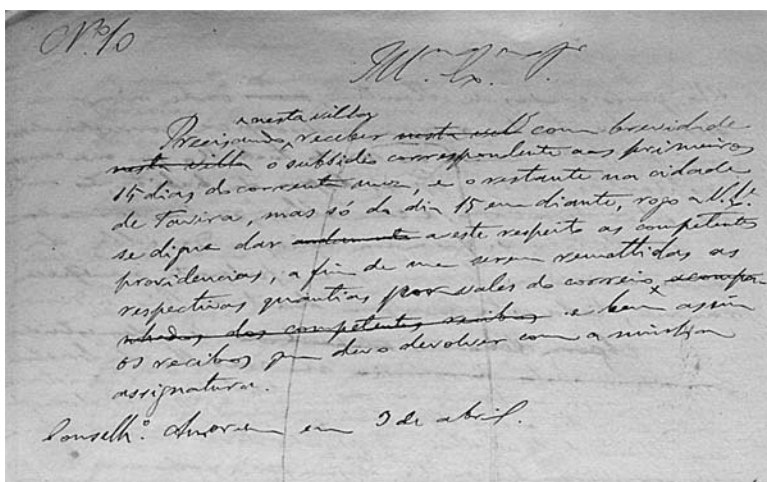 Nº 10
Illmo Exmo Sr.
nesta villa
Precisando receber nesta villa com brevidade
nesta villa o subsidio correspondente aos primeiros
15 dias do corrente mez, e o restante na cidade
de Tavira, mas só do dia 15 em diante, rogo a V. Exa
se digne dar andamento a este respeito as competentes
providencias, a fim de me serem remettidas as
respectivas quantias por vales do correio acompa-
nhados dos competentes recibos e bem assim
os recibos que devo devolver com a minha
assignatura.
Conselhº. em 3 de abril.